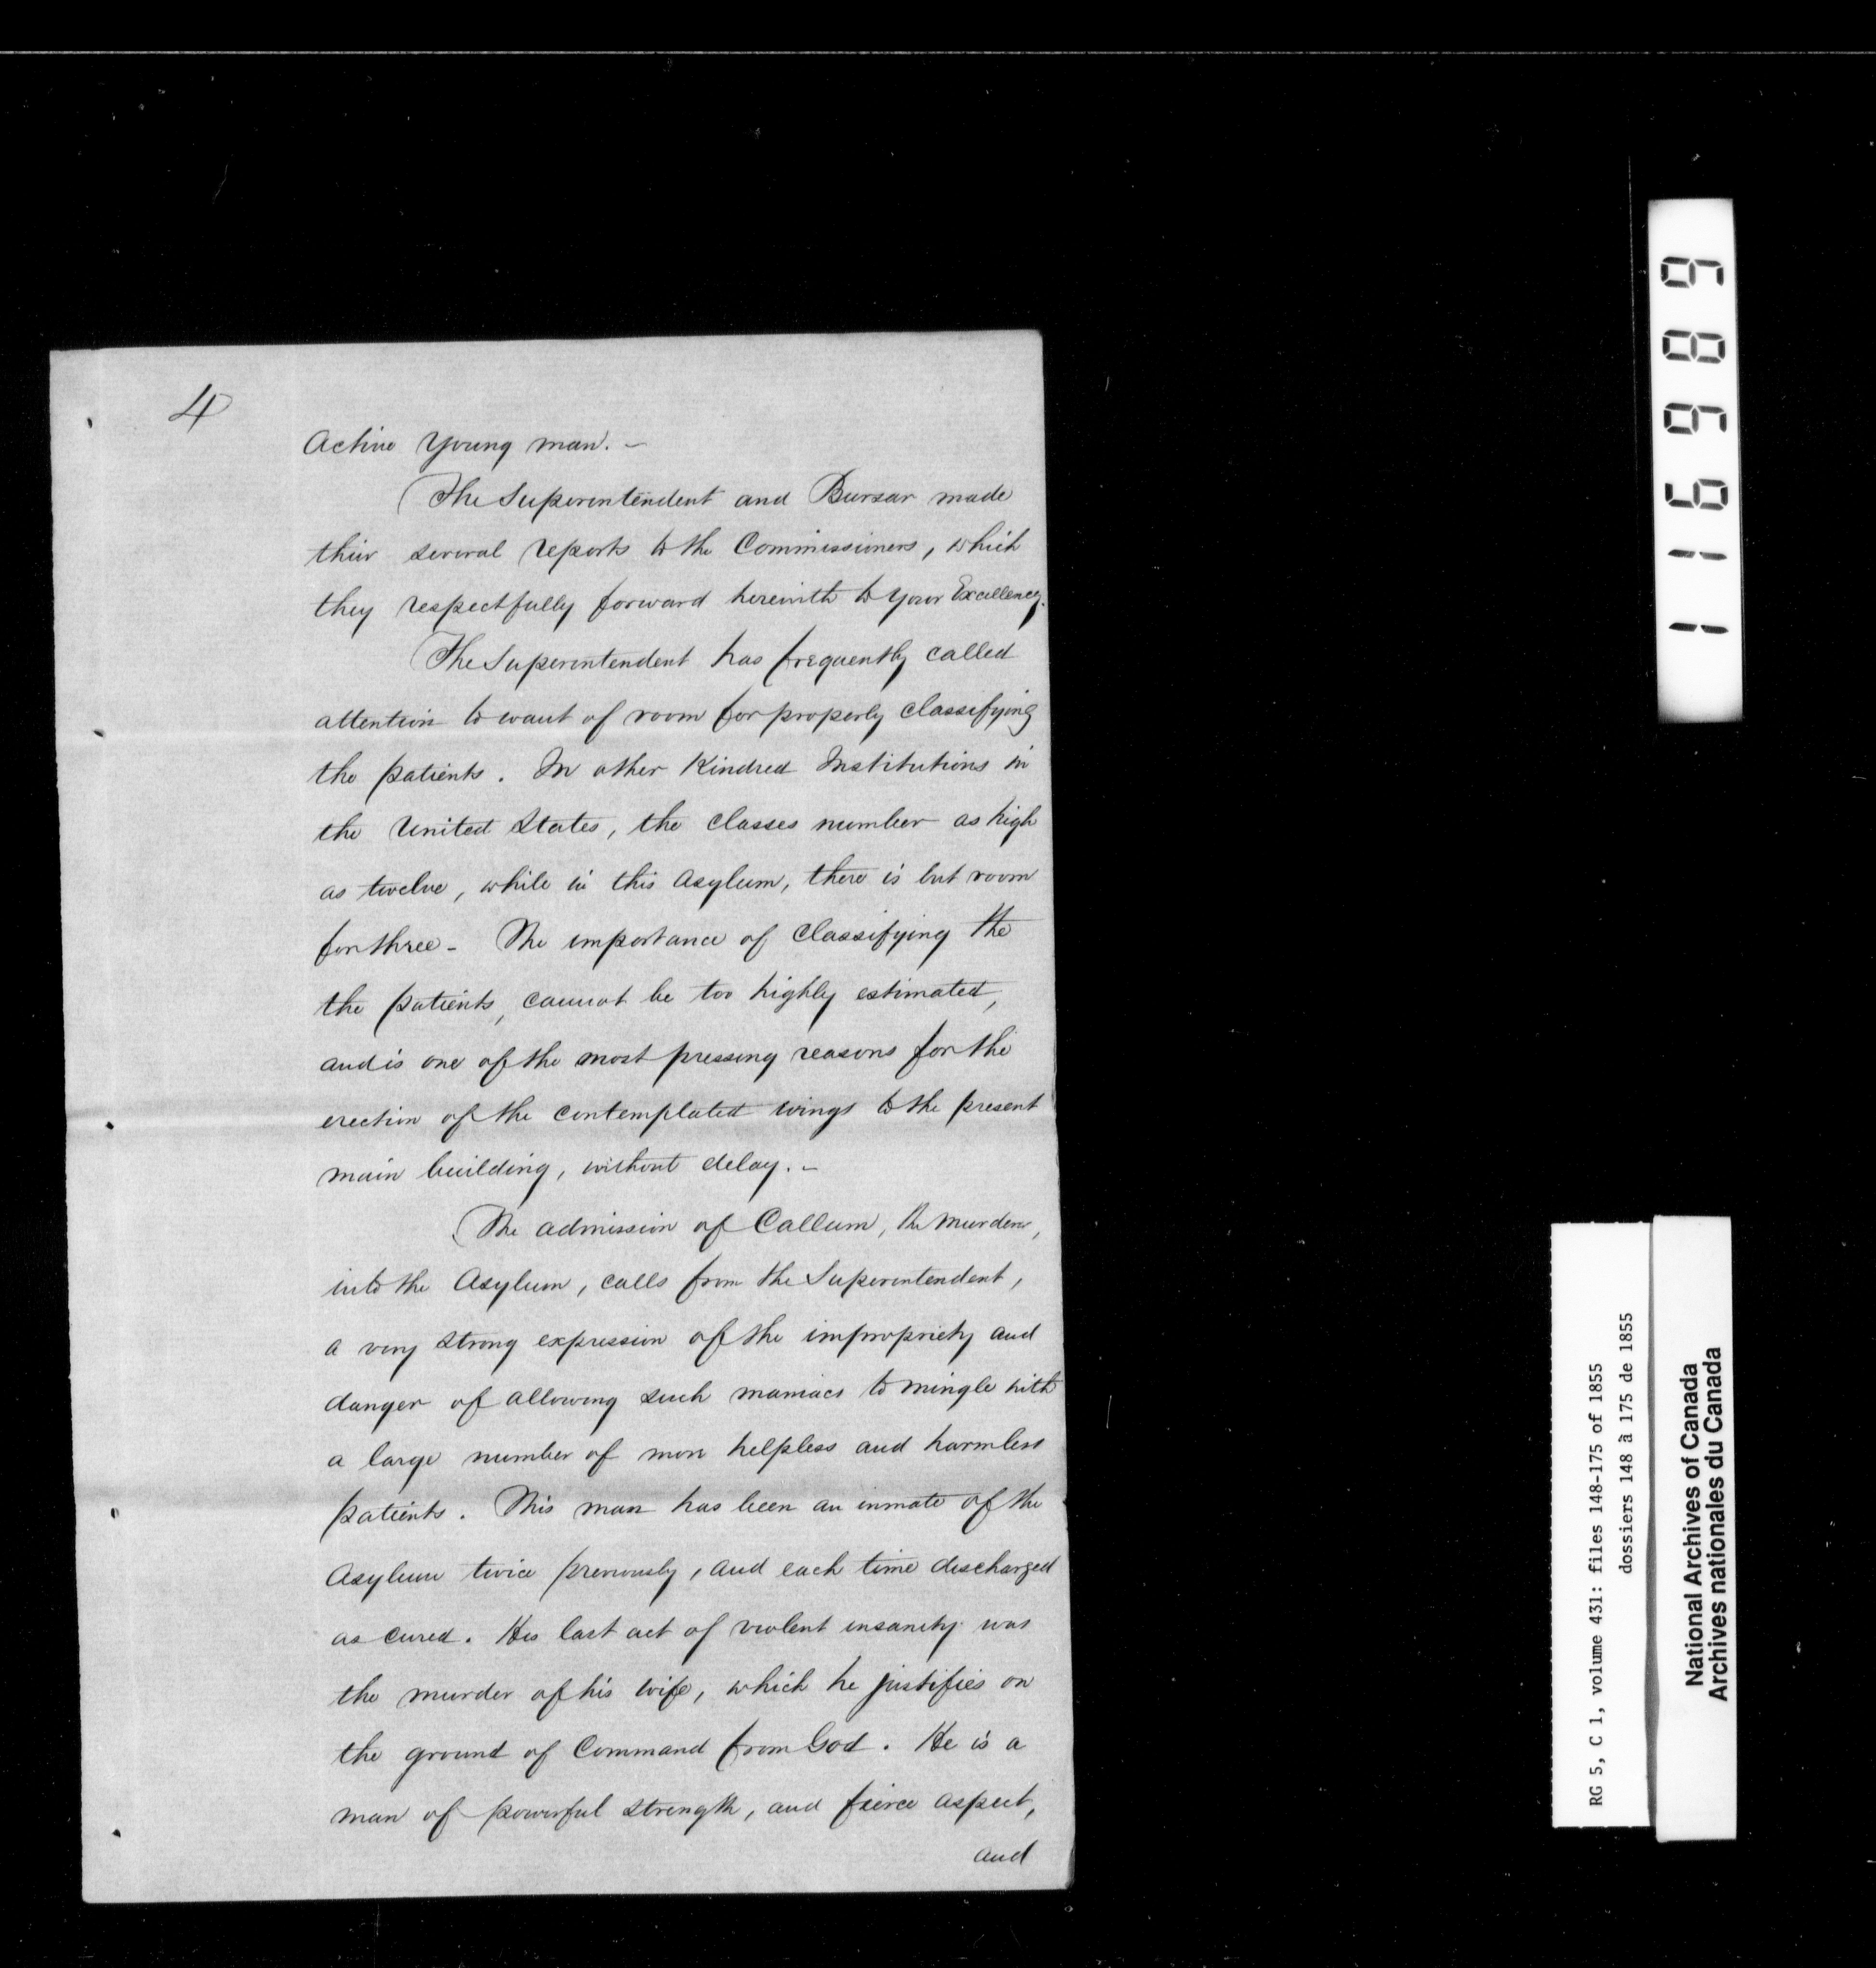 4
Active Young man. –
The Superintendent and Bursar made
their several reports to the Commissioners, which
they respectfully forward herewith to your Excellency.
The Superintendent has frequently called
attention to want of room for properly classifying
the patients. In other Kindred Institutions in
the United States, the classes number as high
as twelve, while in this Asylum, there is but room
for three – The importance of classifying the
the patients, cannot be too highly estimated,
and is one of the most pressing reasons for the
erection of the contemplated wings to the present
main building, without delay. –
The admission of Callum, the murderer,
into the Asylum, calls from the Superintendent,
a very strong expression of the impropriety and
danger of allowing such maniacs to mingle with
a large number of more helpless and harmless
patients. This man has been an inmate of the
Asylum twice previously, and each time discharged
as cured. His last act of violent insanity was
the murder of his wife, which he justifies on
the ground of Command from God. He is a
man of powerful strength, and fierce aspect,
and
116989
RG 5, C 1, volume 431: files 148-175 of 1855
dossiers 148 à 175 de 1855
National Archives of Canada
Archives nationales du Canada